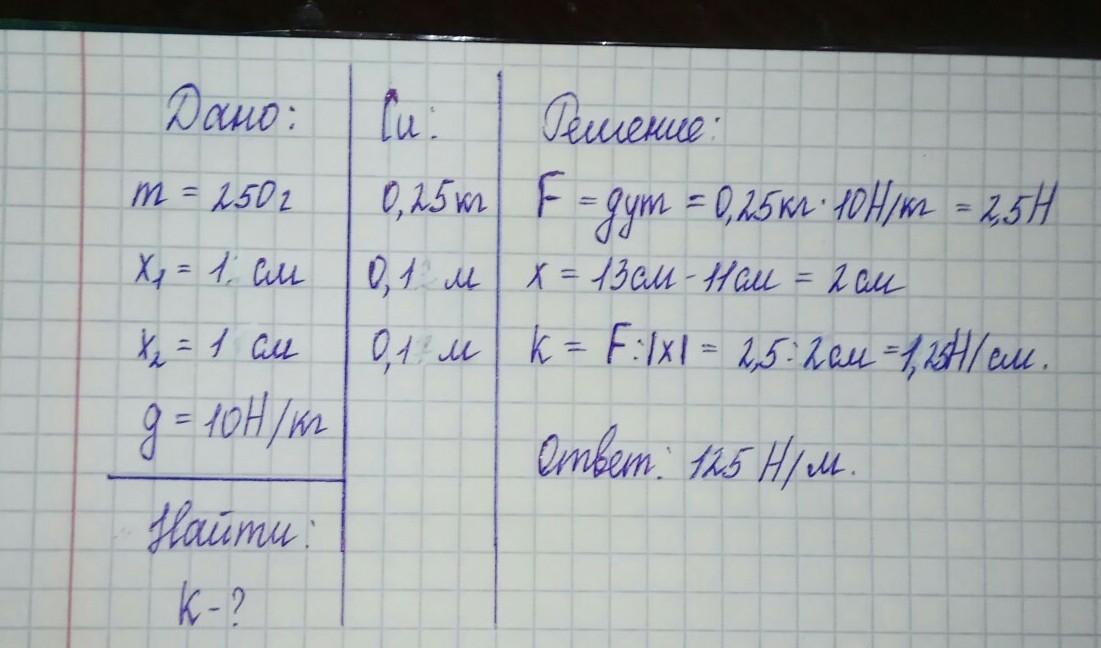 Дано:
m = 250г
x₁ = 1 см
x₂ = 1 см
g = 10Н/кг
Найти:
К-?
Си:
0,25кг
0,1 м
0,1 м
Решение:
F = gуm = 0,25кг·10Н/кг = 2,5Н
x = 13см - 11см = 2см
k = F:|x| = 2,5:2см = 1,25Н/см.
Ответ: 125 Н/м.